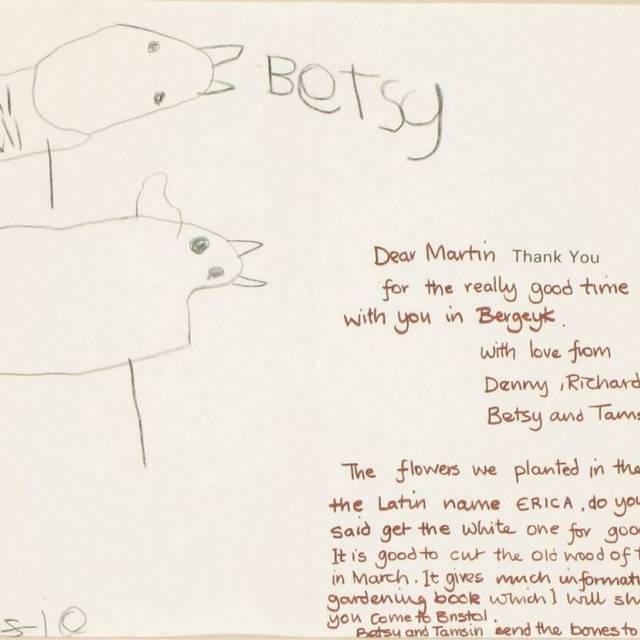 BETSY
Dear Martin Thank You
for the really good time
with you in Bergeyk.
with love from
Denny, Richard
Betsy and Tams
The flowers we planted in the
the Latin name ERICA, do you
said get the white one for goo
It is good to cut the old wood of t
in March. It gives much informati
gardening book which I will sh
you come to Bristol.
Betsy and Tamsin send the bones to